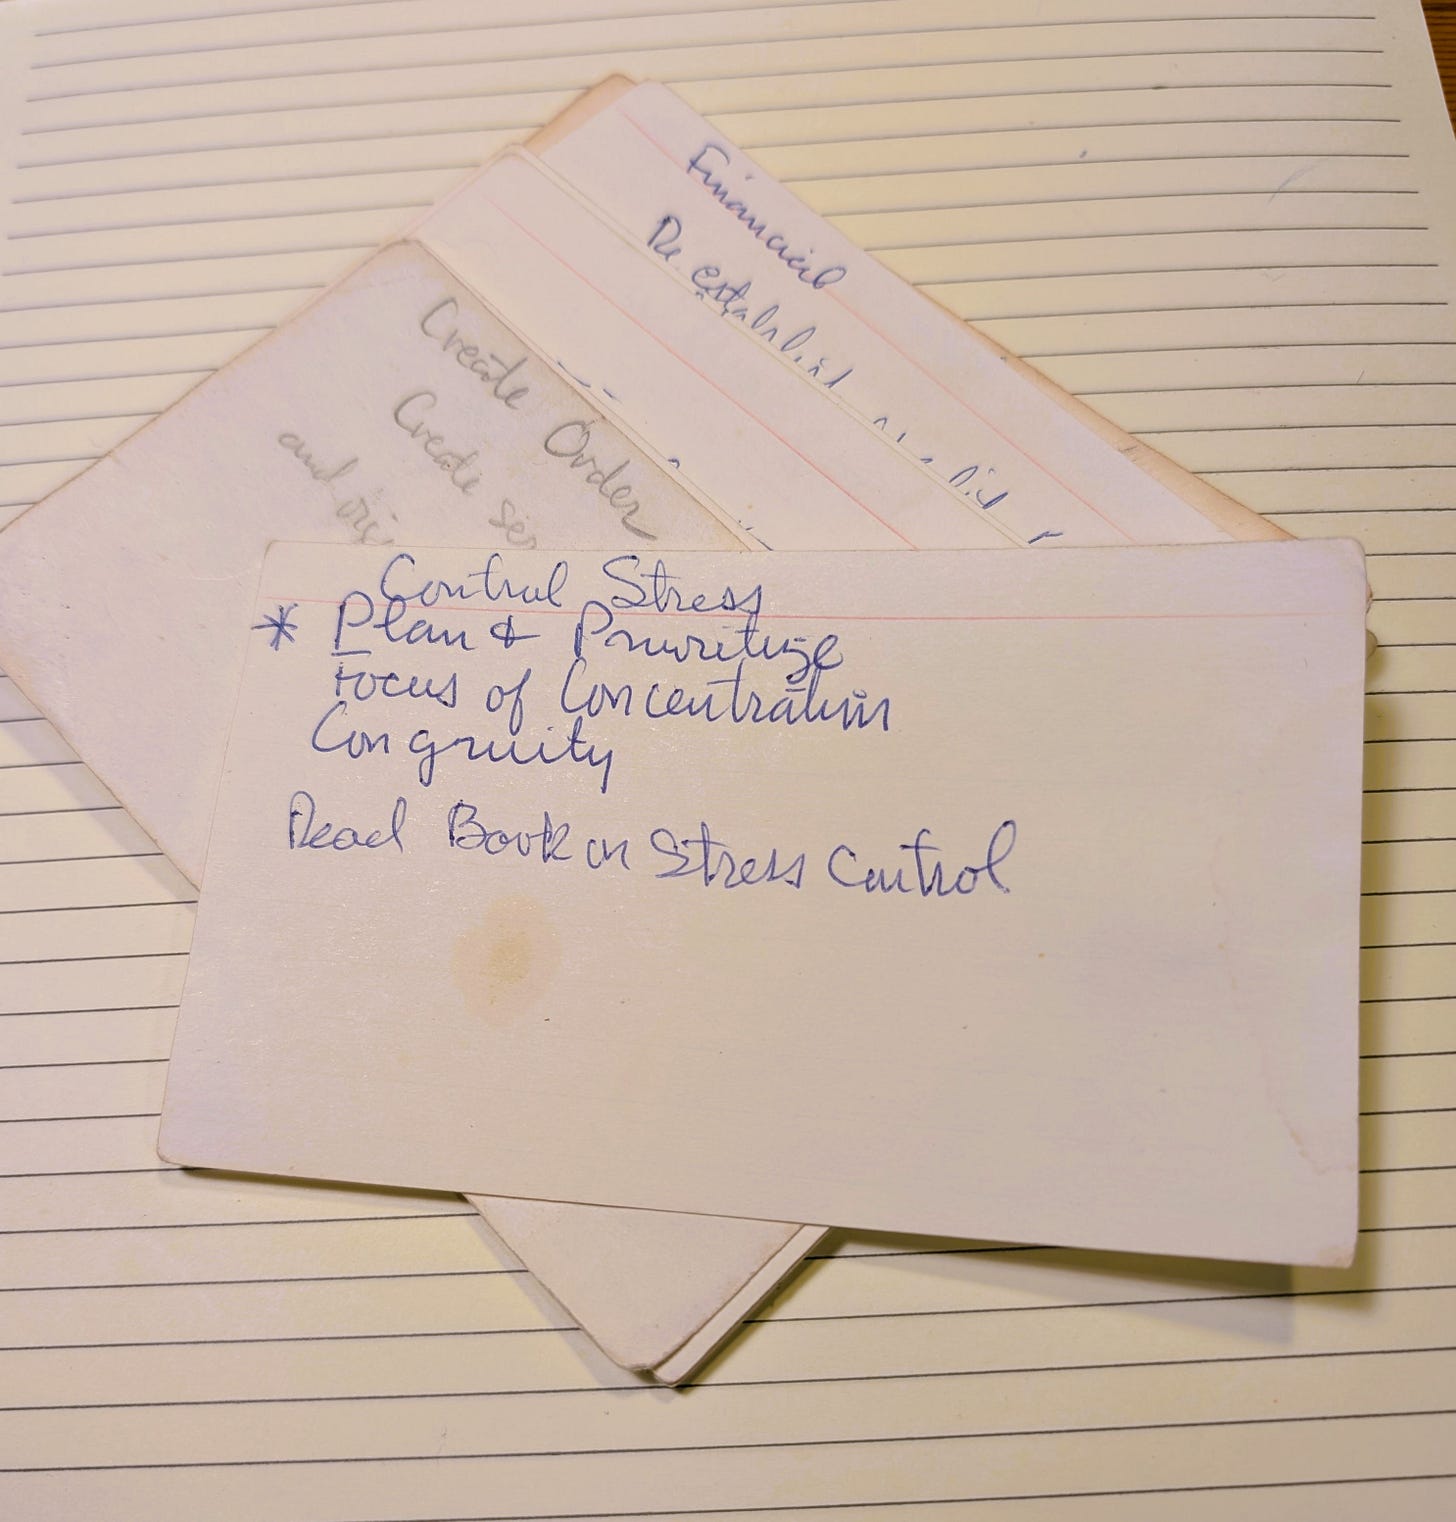 Financial
Re establish
Create Order
Create
and
Control Stress
* Plan & Prioritize
Focus of Concentration
Congruity
Read Book on Stress Control